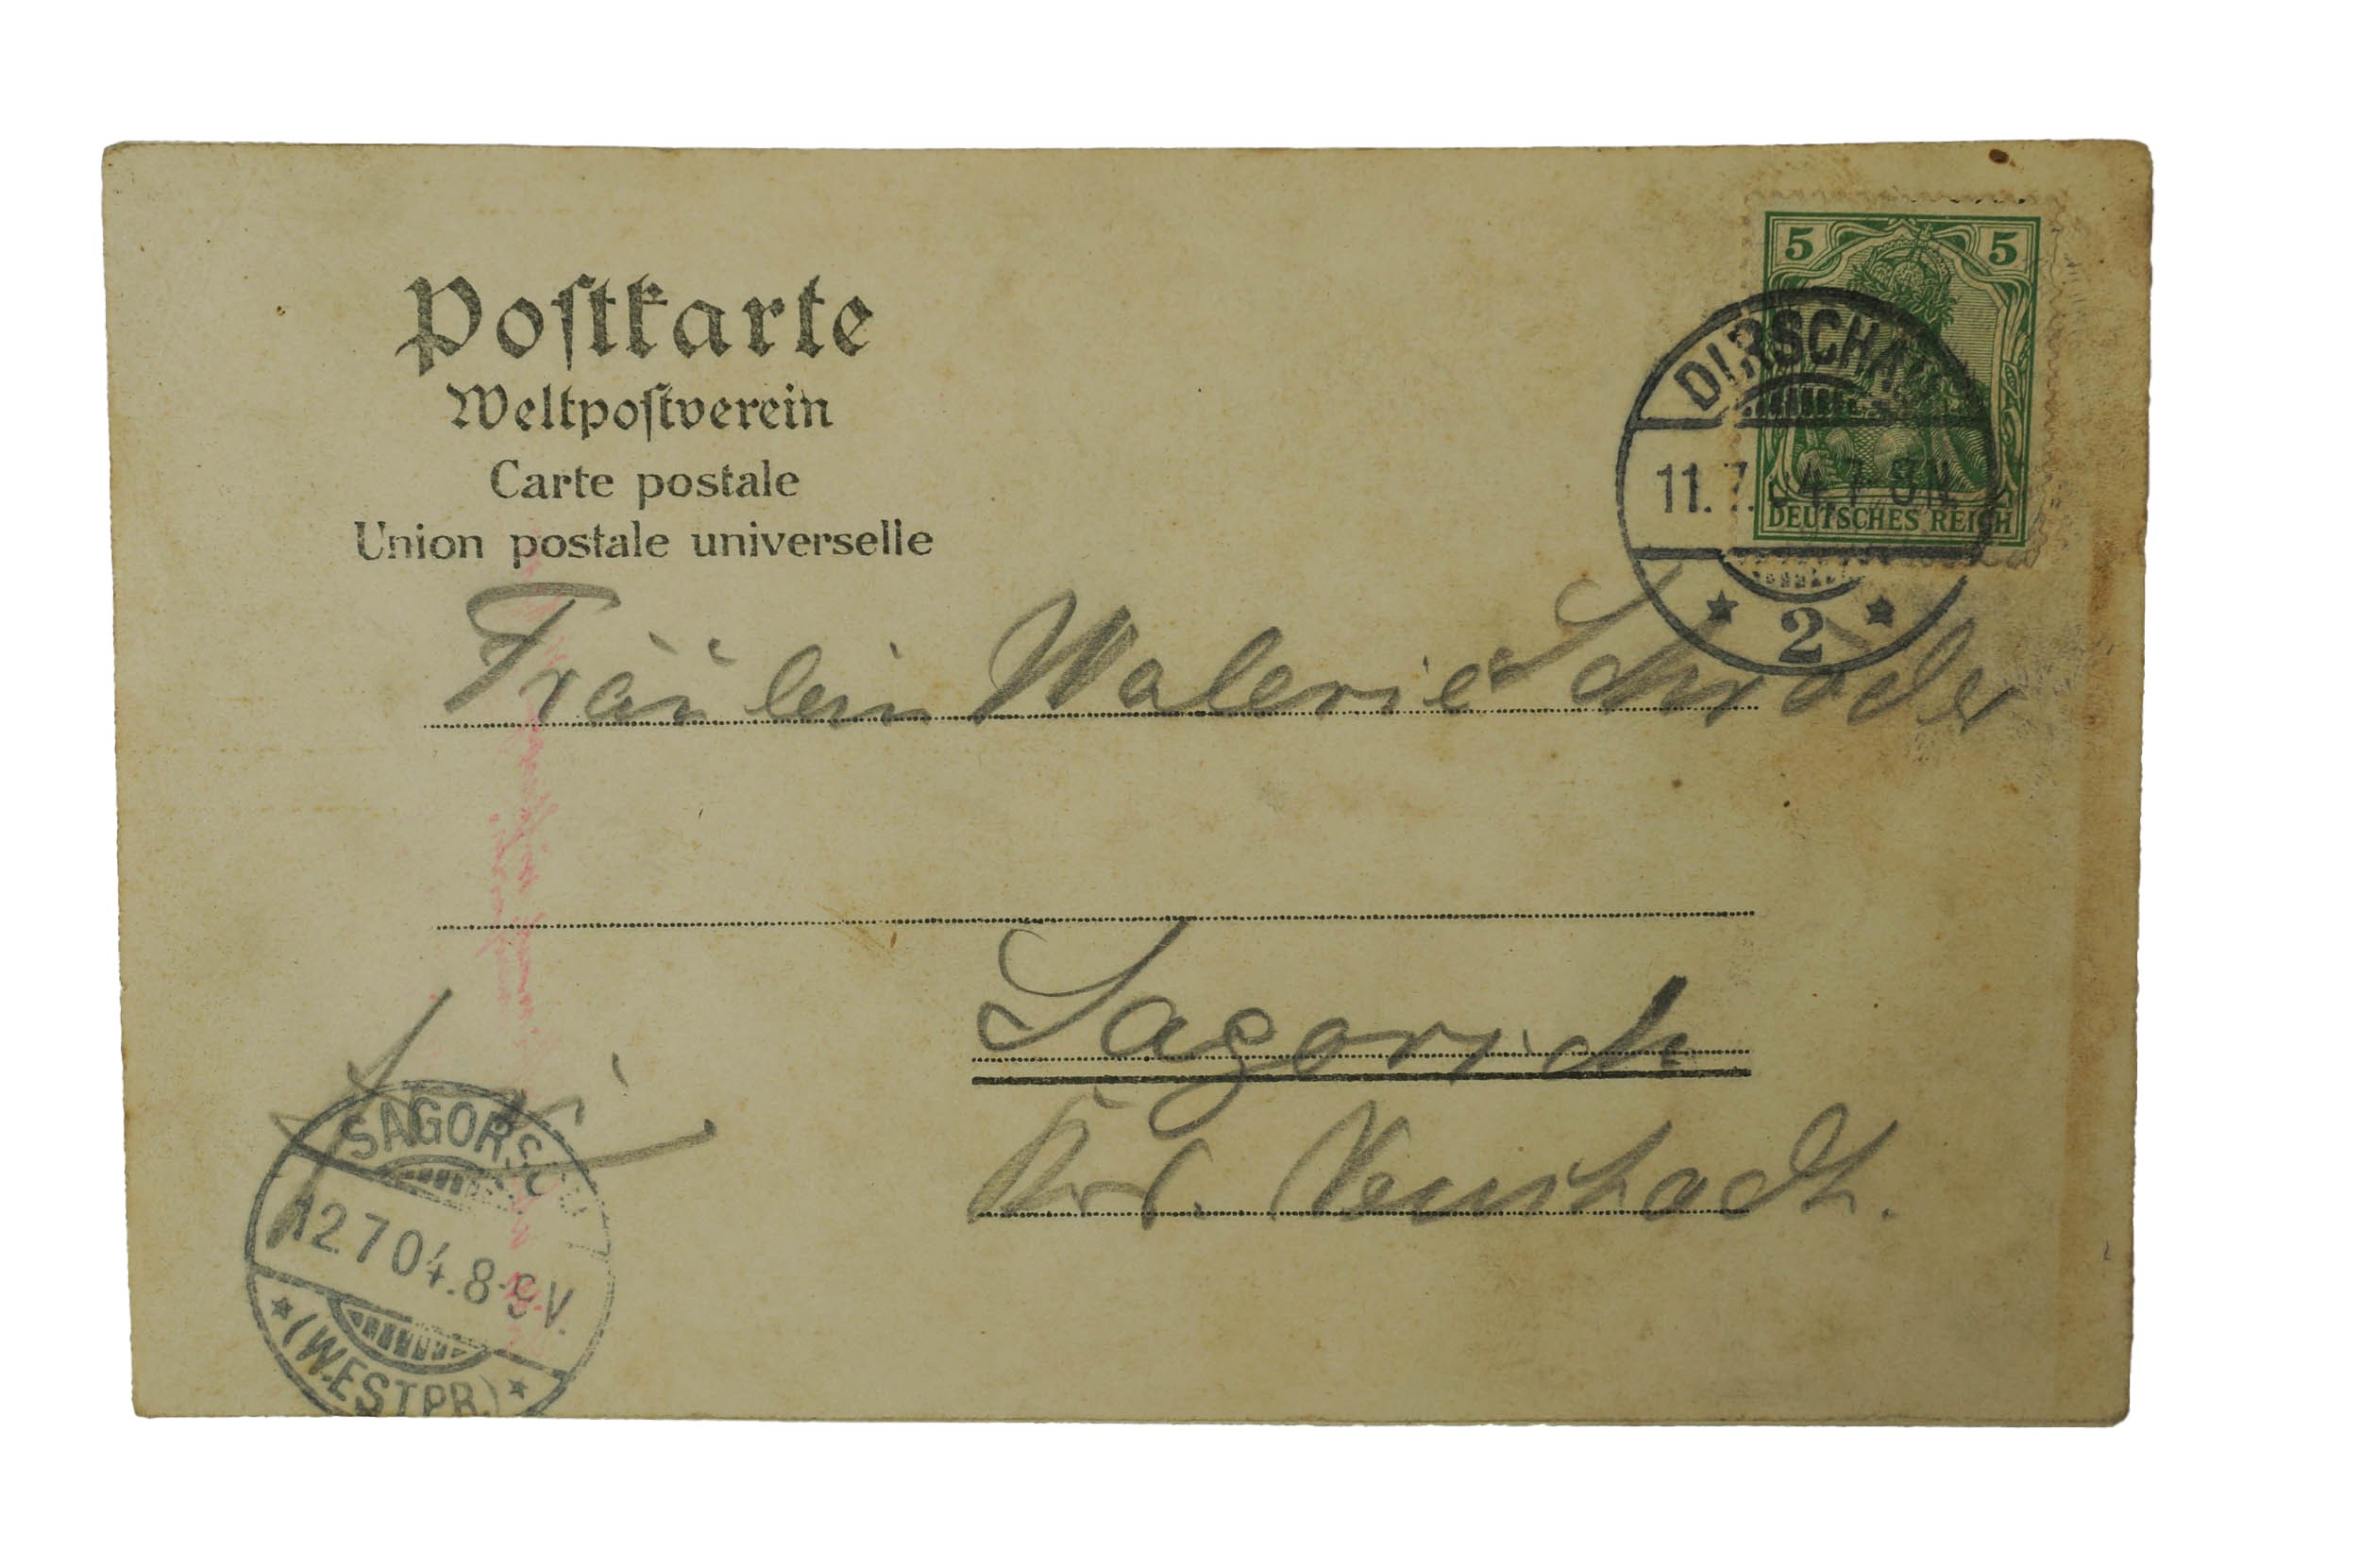 Postkarte
Weltpostverein
Carte postale
Union postale universelle
5 5
DEUTSCHES REICH
DIRSCHAU
11.7. 4.7-8N
* 2 *
Fräulein Walerie Schröder
Sagorsch
Krs. Neustadt.
SAGORSCH
12.7 04.8-9V.
* (WESTPR.) *